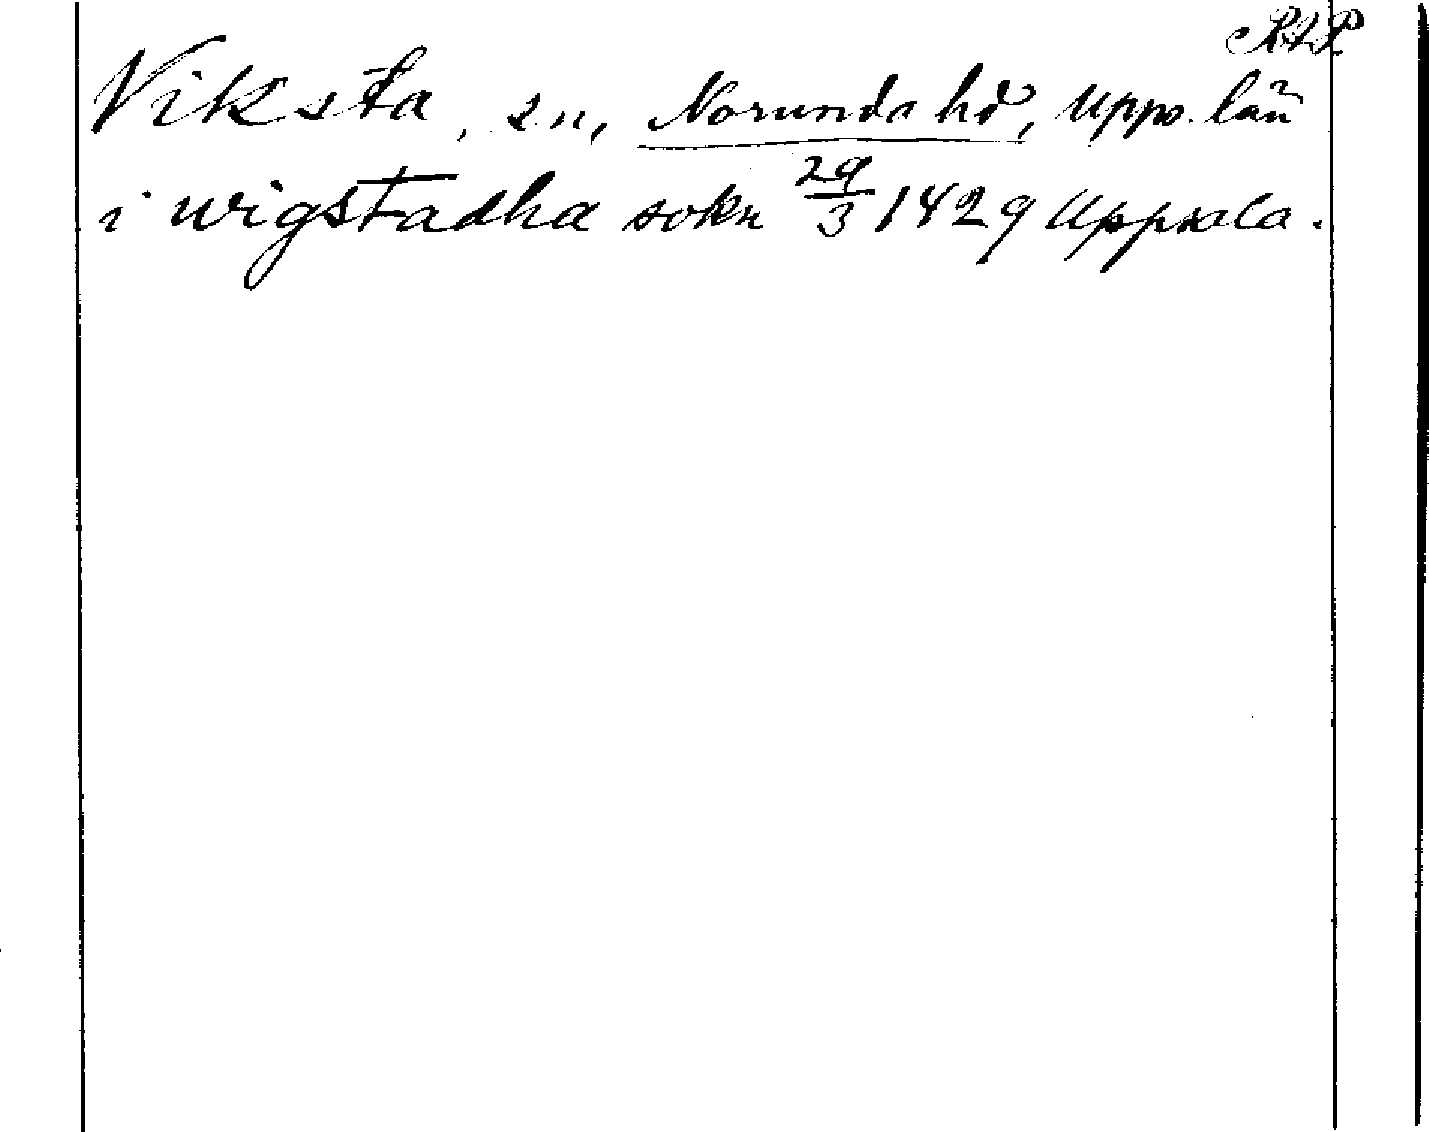 RAP
Viksta, sn, Norunda hd, Upps. län
i wigstadha sokn 29/3 1429 Uppsala.